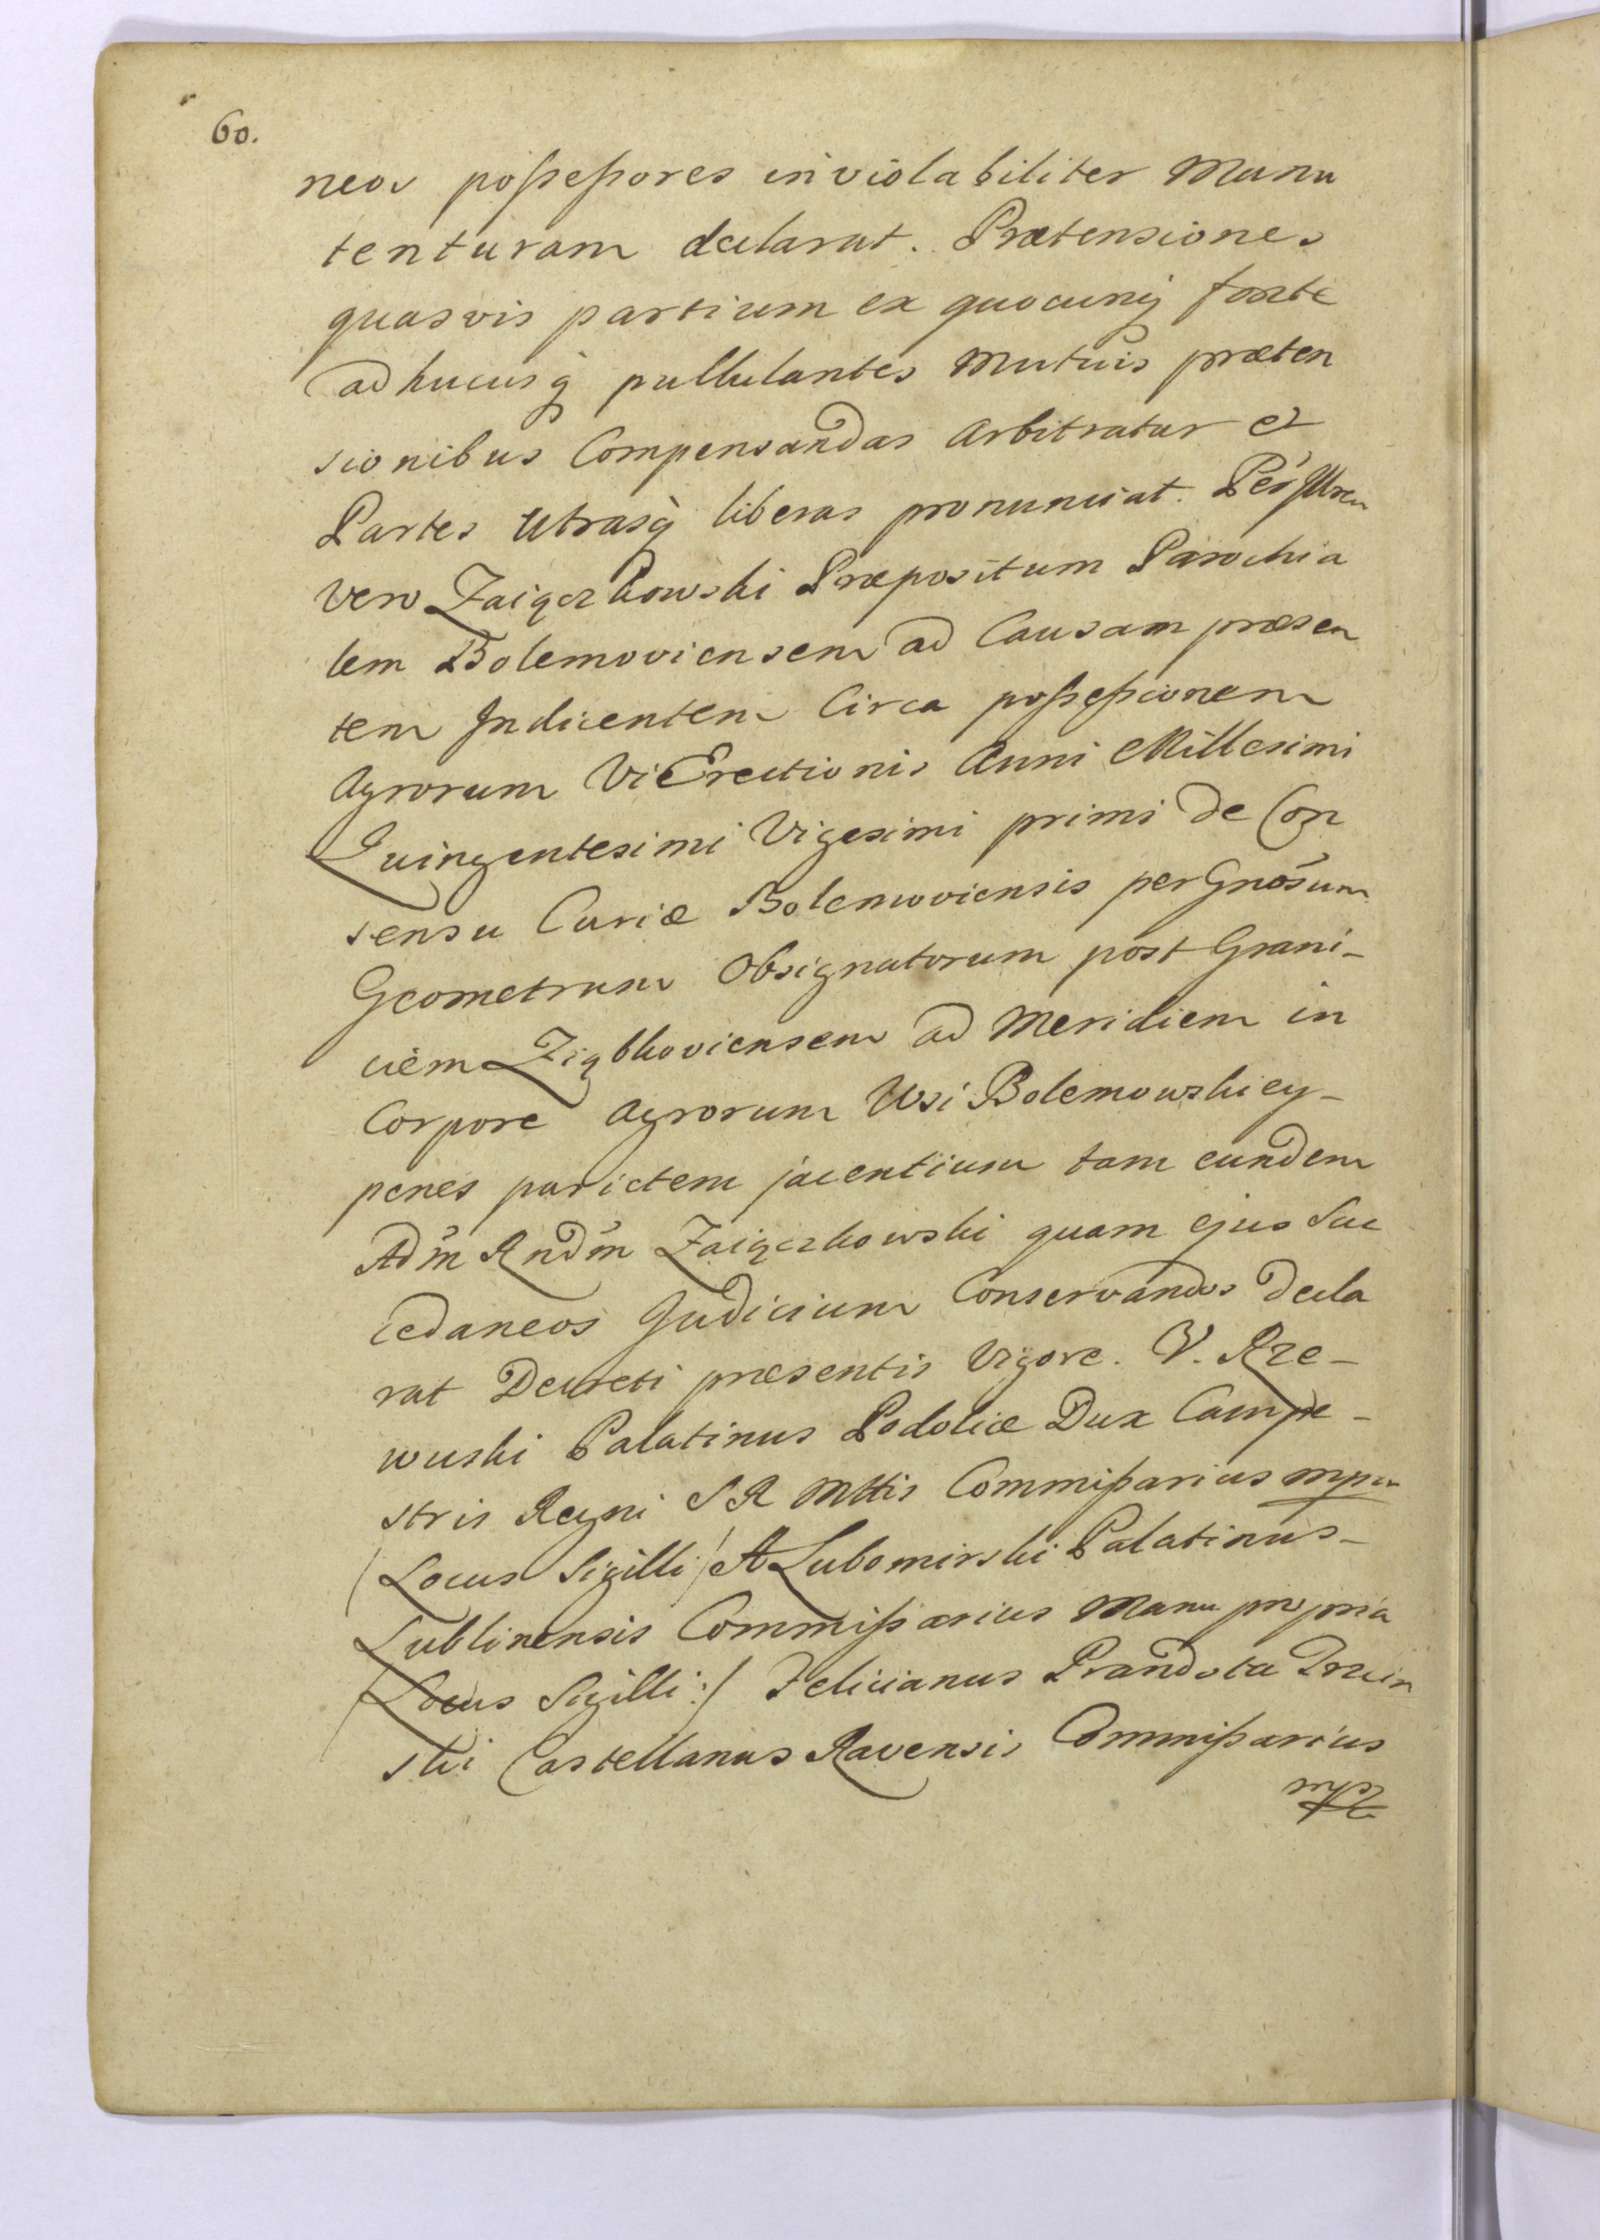 60.
neos possessores inviolabiliter Manu
tenturam declarat. Prætensiones
quasvis partium ex quocunq fonte
adhucusq pullulantes Mutuis præten
sionibus Compensandas Arbitratur et
Partes Utrasq liberas pronunciat.
Vero Zaiączkowski Præpositum Parochia
lem Bolemoviensem ad Causam præsen
tem Indicentem Circa possessionem
Agrorum Vi Erectionis Anni Millesimi
Quingentesimi Vigesimi primi de Con
sensu Curiæ Bolemoviensis per Gnosum
Geometram Obsignatorum post Grani-
ciem Ziąbkoviensem ad Meridiem in
Corpore Agrorum Wsi Bolemowskiey-
penes parietem jacentium tam eundem
Adm Rndm Zaiączkowski quam ejus Suc
cedaneos Judicium Conservandos Decla
rat Decreti præsentis Vigore. W. Rze-
wuski Palatinus Podoliæ Dux Campe-
stris Regni S R Mttis Commissarius mpia
/Locus Sigilli/ A Lubomirski Palatinus-
Lublinensis Commissarius Manu propria
/Locus Sigilli:/ Felicianus Prandota Trzcin
ski Castellanus Ravensis Commissarius